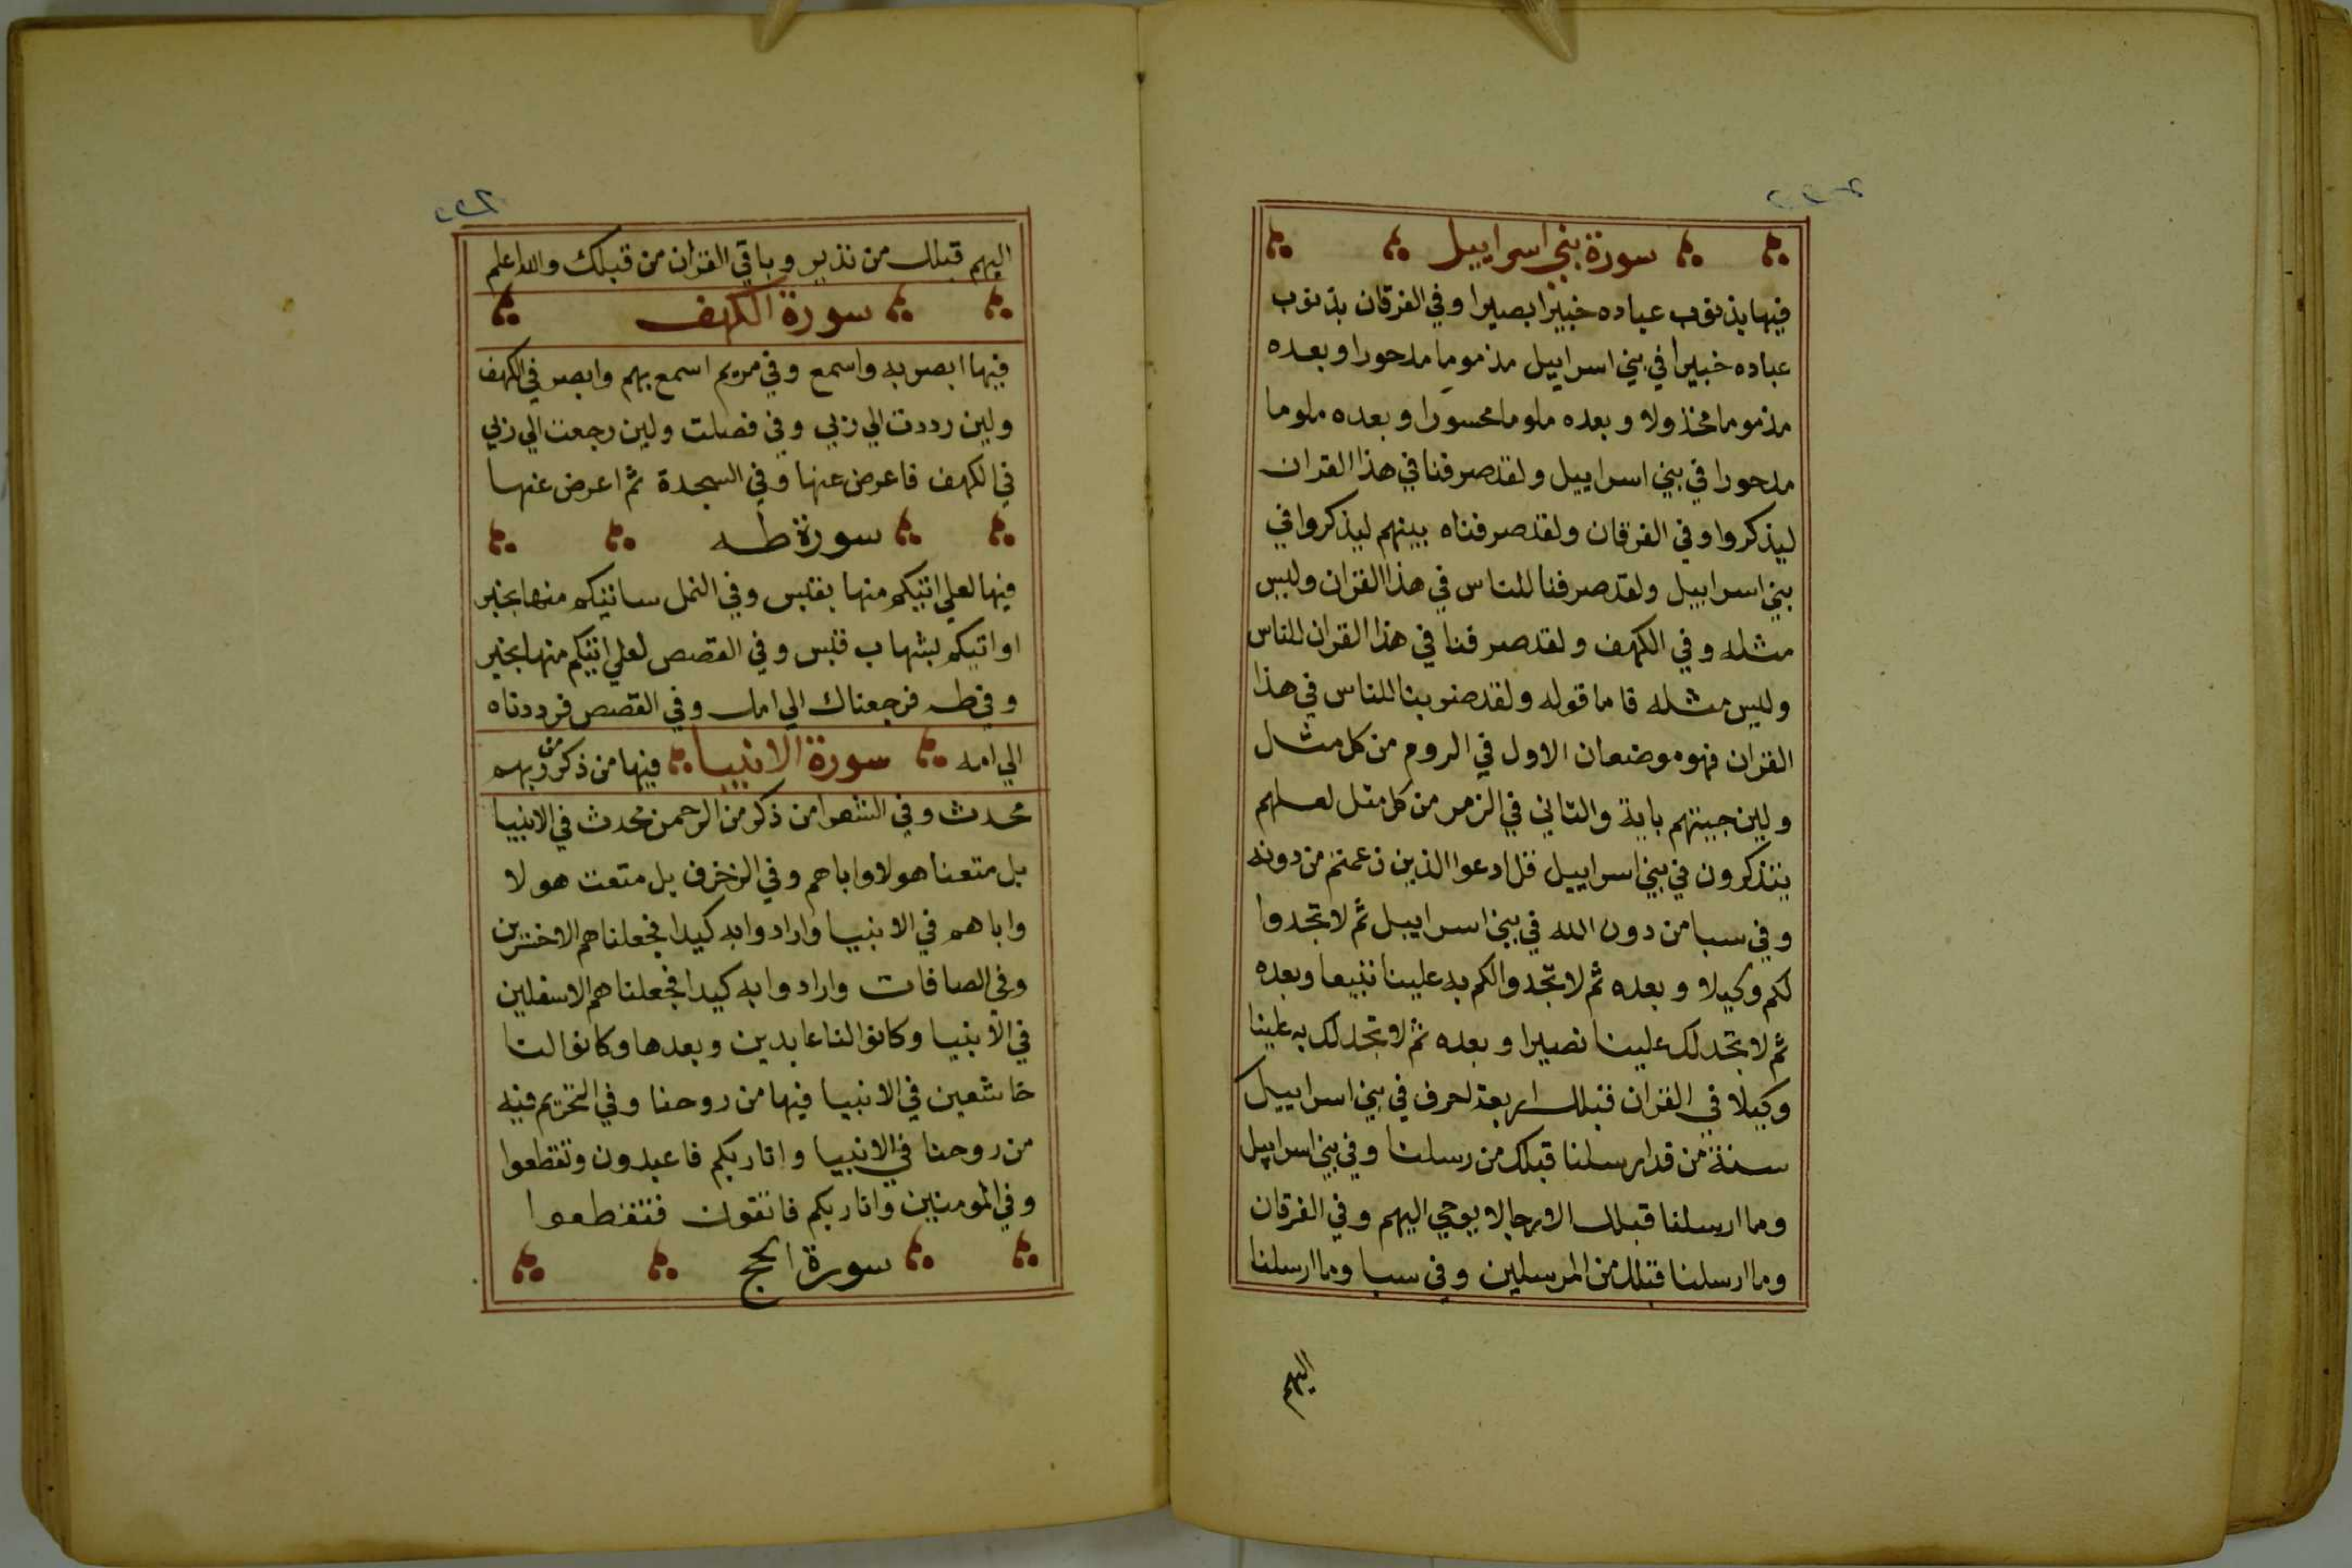 سورة بني اسراييل
فيها بذنوب عباده خبيرا بصيرا وفي الفرقان بذنوب
عباده خبيرا في بني اسراييل مذموما مدحورا وبعده
مذموما مخذولا وبعده ملوما محسورا وبعده ملوما
مدحورا في بني اسراييل ولقد صرفنا في هذا القران
ليذكروا وفي الفرقان ولقد صرفناه بينهم ليذكروا في
بني اسراييل ولقد صرفنا للناس في هذا القران وليس
مثله وفي الكهف ولقد صرفنا في هذا القران للناس
وليس مثله قاما قوله ولقد ضربنا للناس في هذا
القران فهو موضعان الاول في الروم من كل مثل
ولين جيتهم باية والثاني في الزمر من كل مثل لعلهم
يتذكرون في بني اسراييل قل ادعوا الذين زعمتم من دونه
وفي سبا من دون الله في بني اسراييل ثم لا تجدوا
لكم وكيلا وبعده ثم لا تجدوا لكم به علينا تبيعا وبعده
ثم لا تجد لك علينا نصيرا وبعده ثم لا تجد لك به علينا
وكيلا في القران قبلك اربعة احرف في بني اسراييل
سنة من قد ارسلنا قبلك من رسلنا وفي بني اسراييل
وما ارسلنا قبلك الا رجالا يوحي اليهم وفي الفرقان
وما ارسلنا قبلك من المرسلين وفي سبا وما ارسلنا
اليهم
اليهم قبلك من نذير وباقي القران من قبلك والله اعلم
سورة الكهف
فيها ابصر به واسمع وفي مريم اسمع بهم وابصر في الكهف
ولين رددت الي ربي وفي فصلت ولين رجعت الي ربي
في الكهف فاعرض عنها وفي السجدة ثم اعرض عنها
سورة طه
فيها لعلي اتيكم منها بقبس وفي النمل ساتيكم منها بخبر
او اتيكم بشهاب قبس وفي القصص لعلي اتيكم منها بخبر
وفي طه فرجعناك الي امك وفي القصص فرددناه
الي امه سورة الانبيا فيها من ذكر من ربهم
محدث وفي الشعرا من ذكر من الرحمن محدث في الانبيا
بل متعنا هولا واباهم وفي الزخرف بل متعت هولا
واباهم في الانبيا وارادوا به كيدا فجعلناهم الاخسرين
وفي الصافات وارادوا به كيدا فجعلناهم الاسفلين
في الانبيا وكانوا لنا عابدين وبعدها وكانوا لنا
خاشعين في الانبيا فيها من روحنا وفي التحريم فيه
من روحنا في الانبيا وانا ربكم فاعبدون وتقطعوا
وفي المومنين وانا ربكم فاتقون فتقطعوا
سورة الحج